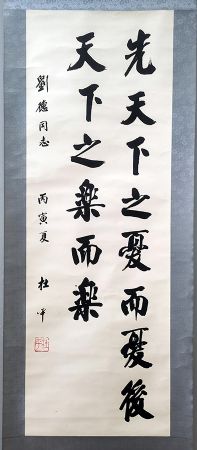 先天下之憂而憂後
天下之樂而樂
劉德同志
丙寅夏
杜平